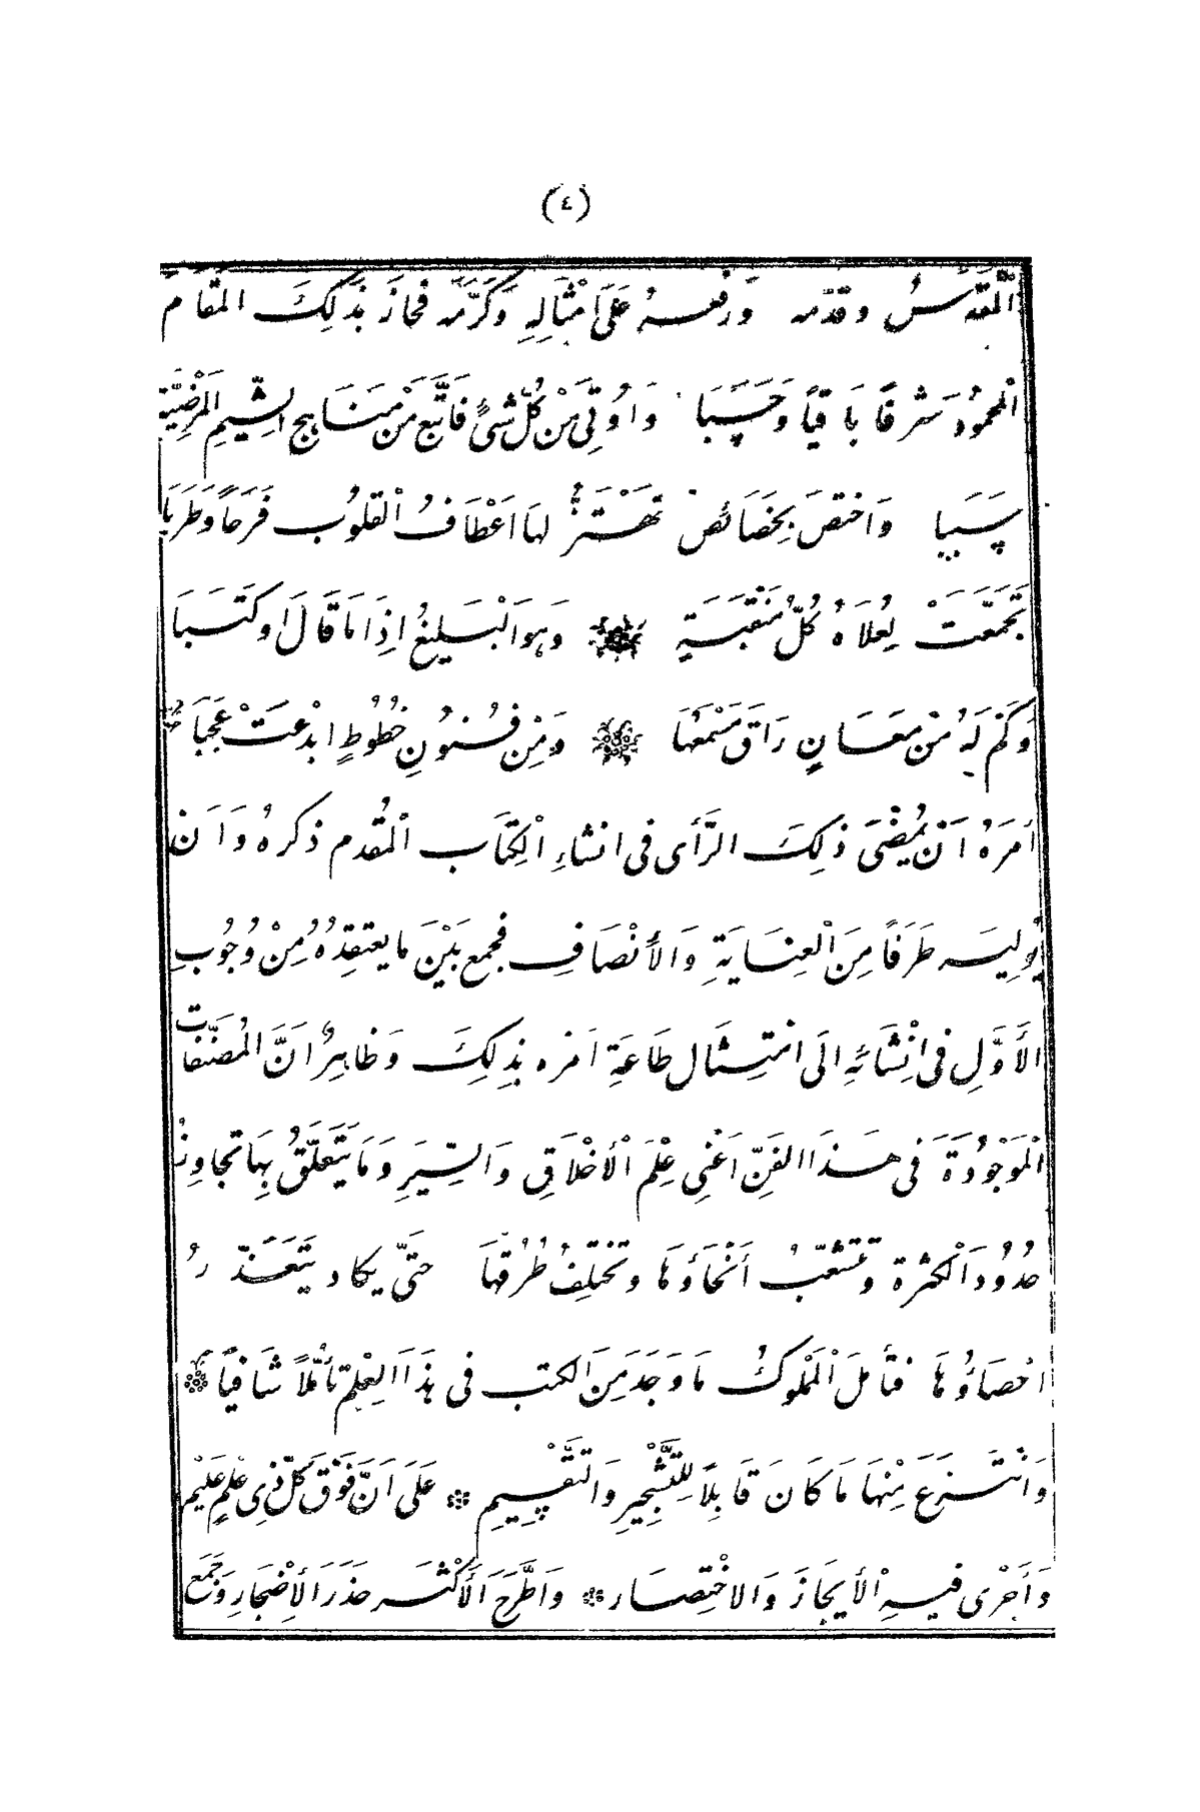 (٤)
المُقَدَّسُ وقدّمه وَرفعهُ عَلَى امْثَالِهِ وَكَرَّمَه فحازَ بذَلِكَ المَقَامَ
الْمَحمُودَ شَرفًا بَاقيًا وَحَسَبَا وَاوُتِىَ مَنْ كُلّ شىْءٍ فَاتَّبَع مَنْ مَنَاهِج الشِّيَمِ المَرْضِيَّةِ
سَبَبا وَاختصَ بِخَصَائِصْ تَهْتَزُّ لهَا اَعْطَافُ الْقلُوُب فَرَحًا وَطَرَبَا
تَجَمَّعَتْ لِعُلَاهُ كُلّ مُنَقَبَةٍ ❊ وَهوَ الْبَلِيغُ اِذَا مَا قَالَ اَوكَتَبَا
وَكَمْ لَهُ مُنْ مَعَانٍ رَاقَ مَسْمَعُهَا ❊ وَمِنْ فُنُونِ خُطُوُطٍ ابْدعَتْ عَجَبَا
اَمَرَهُ اَنْ يُمْضِىَ ذلِكَ الرَّأى فى انشاءِ الْكِتَاب الْمُقدم ذكرهُ وَاَن
يُولِيَه طَرَفًا مِنَ الْعِنَايَةِ وَالأنْصَافِ فجمع بَيْنَ ما يعتقِدُهُ مِنْ وُجُوبِ
الأَوَّلِ فى اِنْشَائهِ اِلَى امْتِثَال طَاعَةِ اَمْره بذِلِكَ وَظاهِرٌ اَنَّ المُصَنّفات
الْمَوْجُودَةَ فى هَذَا الفَنِّ اَعْنِى عِلْمَ الْأَخْلَاقِ وَالسِّيَرِ وَمَا يَتَعَلَّقُ بِهَا تجاوِزُ
حُدُودَ الْكثرة وَتَتَشعّبُ أَنْحَاؤهَا وتَختَلِفُ طُرُقُهَا حَتَّى يكاد يَتَعَذّرُ
احْصَاؤُهَا فتأملَ الْمَمْلوكُ مَا وَجَدَ مَنِ الكتب فى هَذَا الِعلْمِ تأمُّلاً شَافيًا ❊
وَانتَزعَ مِنْهَا مَا كَانَ قَابِلاً لِلتَّشْجِيرِ وَالتَّقْسِيمِ ❊ عَلَى اَنَّ فَوْقَ كُلّ ذِى عِلْمٍ عَلَيْم
وَأَجْرى فيهِ الأيجَازَ وَالاخْتِصَار ❊ وَاطَّرَحَ الأَكْثَر حَذَرَ الأِضْجَارِ وَجَمَع